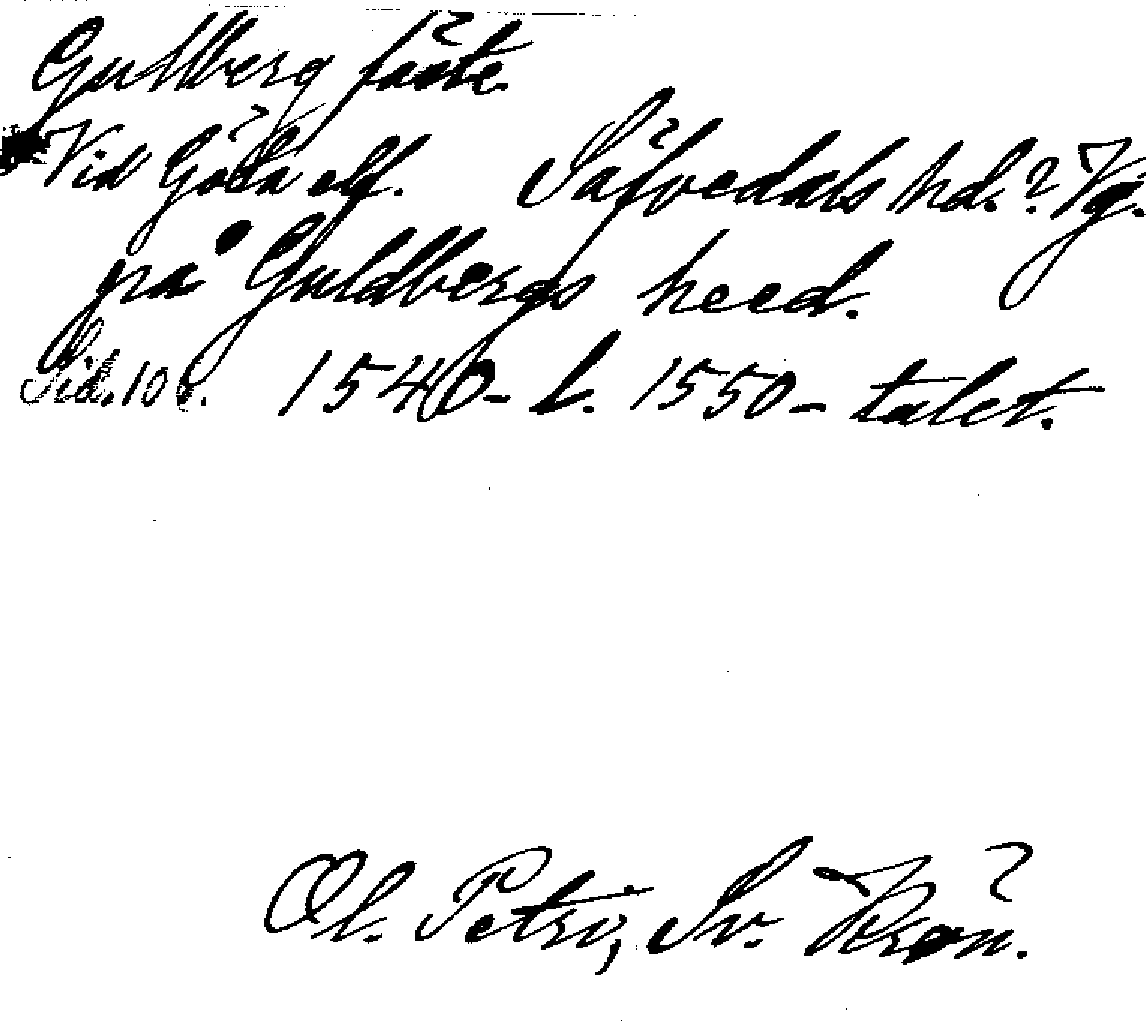 Gullberg fäste.
Vid Göta elf. Säfvedals hd.? Vg.
på Guldbergs heed.
Sid. 106. 1540- l. 1550-talet.
Ol. Petri, Sv. Krön.